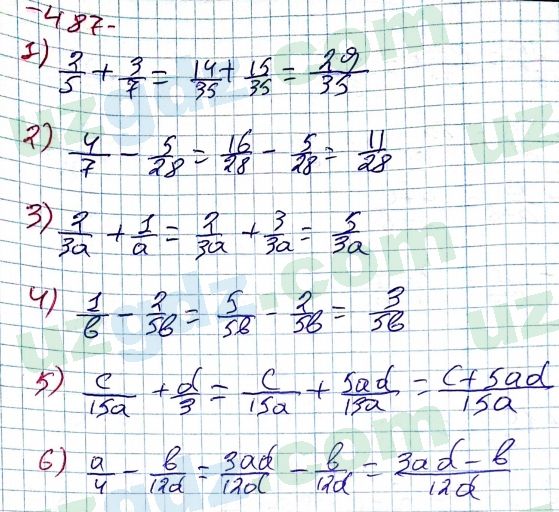 -487-
1) 2/5 + 3/7 = 14/35 + 15/35 = 29/35
2) 4/7 - 5/28 = 16/28 - 5/28 = 11/28
3) 2/3a + 1/a = 2/3a + 3/3a = 5/3a
4) 1/b - 2/5b = 5/5b - 2/5b = 3/5b
5) c/15a + d/3 = c/15a + 5ad/15a = c+5ad/15a
6) a/4 - b/12d = 3ad/12d - b/12d = 3ad-b/12d
uzgdz.com